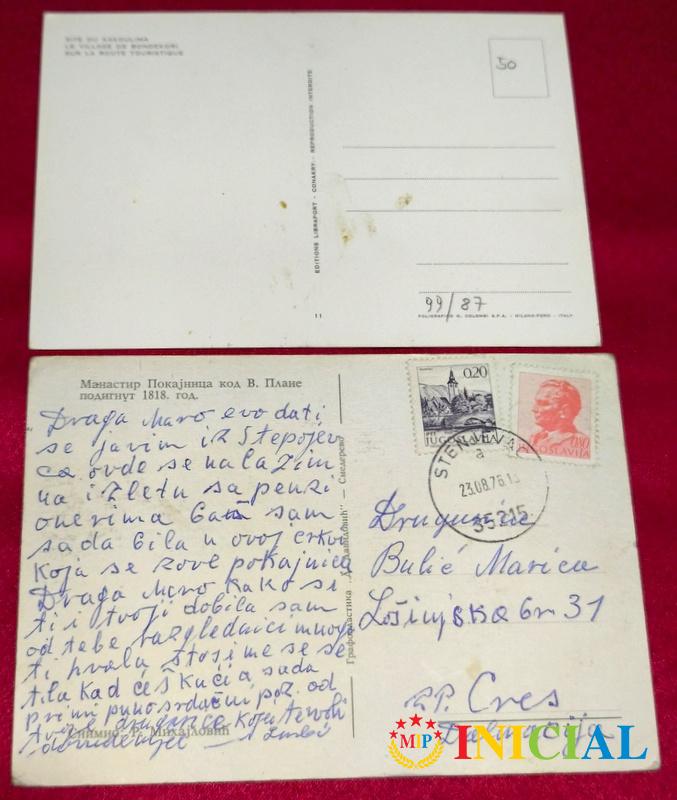 SITE DU KAKOULIMA
LE VILLAGE DE BONDEKORI
SUR LA ROUTE TOURISTIQUE
EDITIONS LIBRAPORT - CONAKRY - REPRODUCTION INTERDITE
50
99/87
11
POLIGRAFICO G. COLOMBI S.P.A. - MILANO-PERO - ITALY
Манастир Покајница код В. Плане
подигнут 1818. год.
Draga Maro evo da ti
se javim iz Stepojev
ca ovde se nalazim
na izletu sa penzi
onerima baš sam
sada bila u ovoj crkvi
koja se zove pokajnica
Draga Maro kako si
ti i tvoji dobila sam
od tebe razglednici mnogo
ti hvala što si me se se
tila kad ćeš kući a sada
primi puno srdačni poz. od
tvoje drugarice koja te voli
doviđenje
Снимио: Р. Михајловић
Графопластика
Смедерево
0,20
JUGOSLAVIJA
0,80
JUGOSLAVIJA
a
23.08.76.15
35215
Drugarica
Bulić Marica
Lošinjska br 31
Cres
Dalmacija
MIP
INICIAL